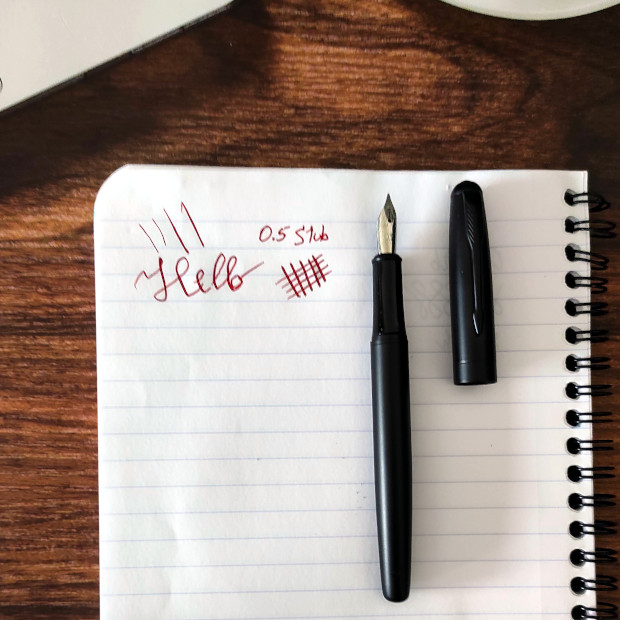 0.5 Stub
Hello